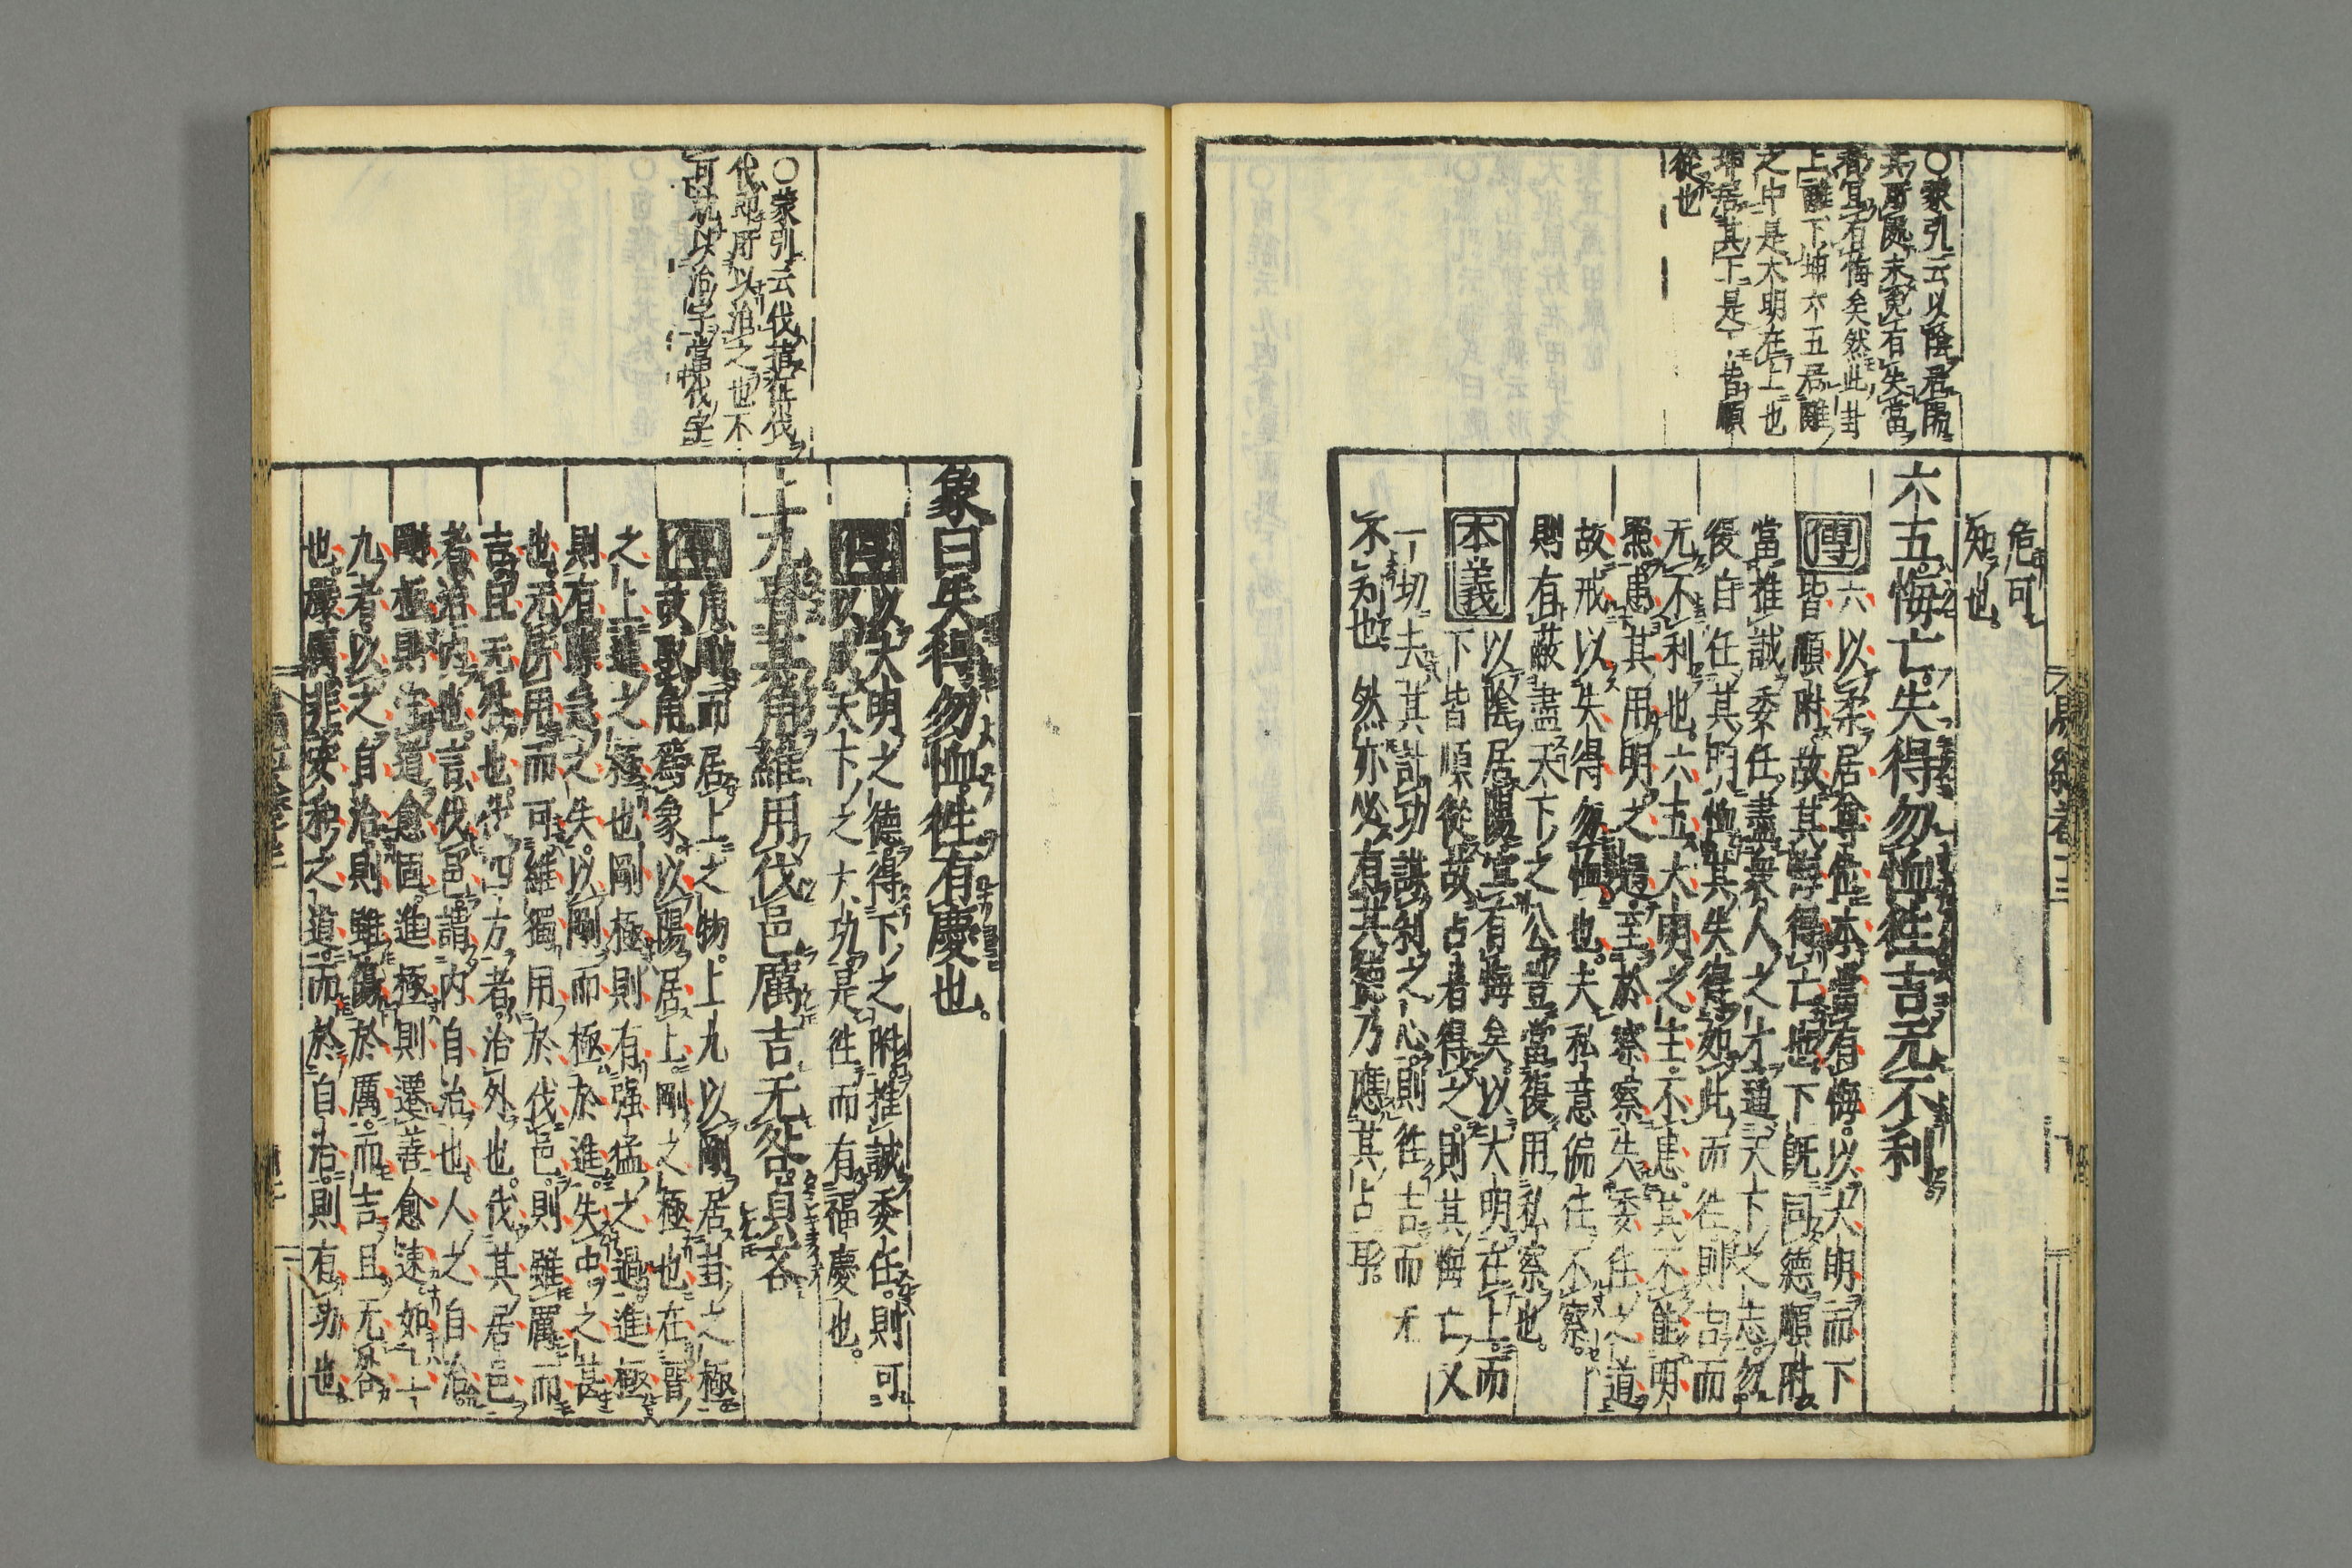 ○蒙引云以陰居陽
其所處未免有失當
者宜有悔矣然此卦
上離下坤六五居離
之中是大明在上也
坤居其下是下皆順
從也
危可
知也。
六五。悔亡。失得勿恤。往吉无不利
傳六以柔居尊位。本當有悔。以大明而下
皆順附。故其悔得亡也。下既同德順附。
當推誠委任。盡衆人之才。通天下之志。勿
復自任其明。恤其失得。如此而往則吉而
无不利也。六五大明之主。不患其不能明
照。患其用明之過。至於察察失委任之道。
故戒以失得勿恤也。夫私意偏任不察。
則有蔽盡天下之公。豈當復用私察也。
本義以陰居陽。宜有悔矣。以大明在上。而
下皆順從。故占者得之。則其悔亡。又
一切去其計功謀利之心。則往吉而无
不利也。然亦必有其德乃應其占耳。
易經卷十三
○蒙引云伐者征伐
代即所以治之也不
可就以治字當伐字
象曰。失得勿恤。往有慶也。
傳以大明之德。得下之附。推誠委任。則可
以成天下之大功。是往而有福慶也。
上九。晉其角。維用伐邑。厲吉无咎。貞吝
傳角剛而居上之物。上九以剛居卦之極。
故取角爲象。以陽居上。剛之極也。在晉
之上。進之極也。剛極則有强猛之過。進極
則有躁急之失。以剛而極於進。失中之甚
也。无所用而可。維獨用於伐邑。則雖厲而
吉。且无咎也。伐四方者。治外也。伐其居邑
者。治內也。言伐邑。謂內自治也。人之自治。
剛極則守道愈固。進極則遷善愈速。如上
九者。以之自治。則雖傷於厲。而吉且无咎
也。嚴厲非安和之道。而於自治。則有功也。